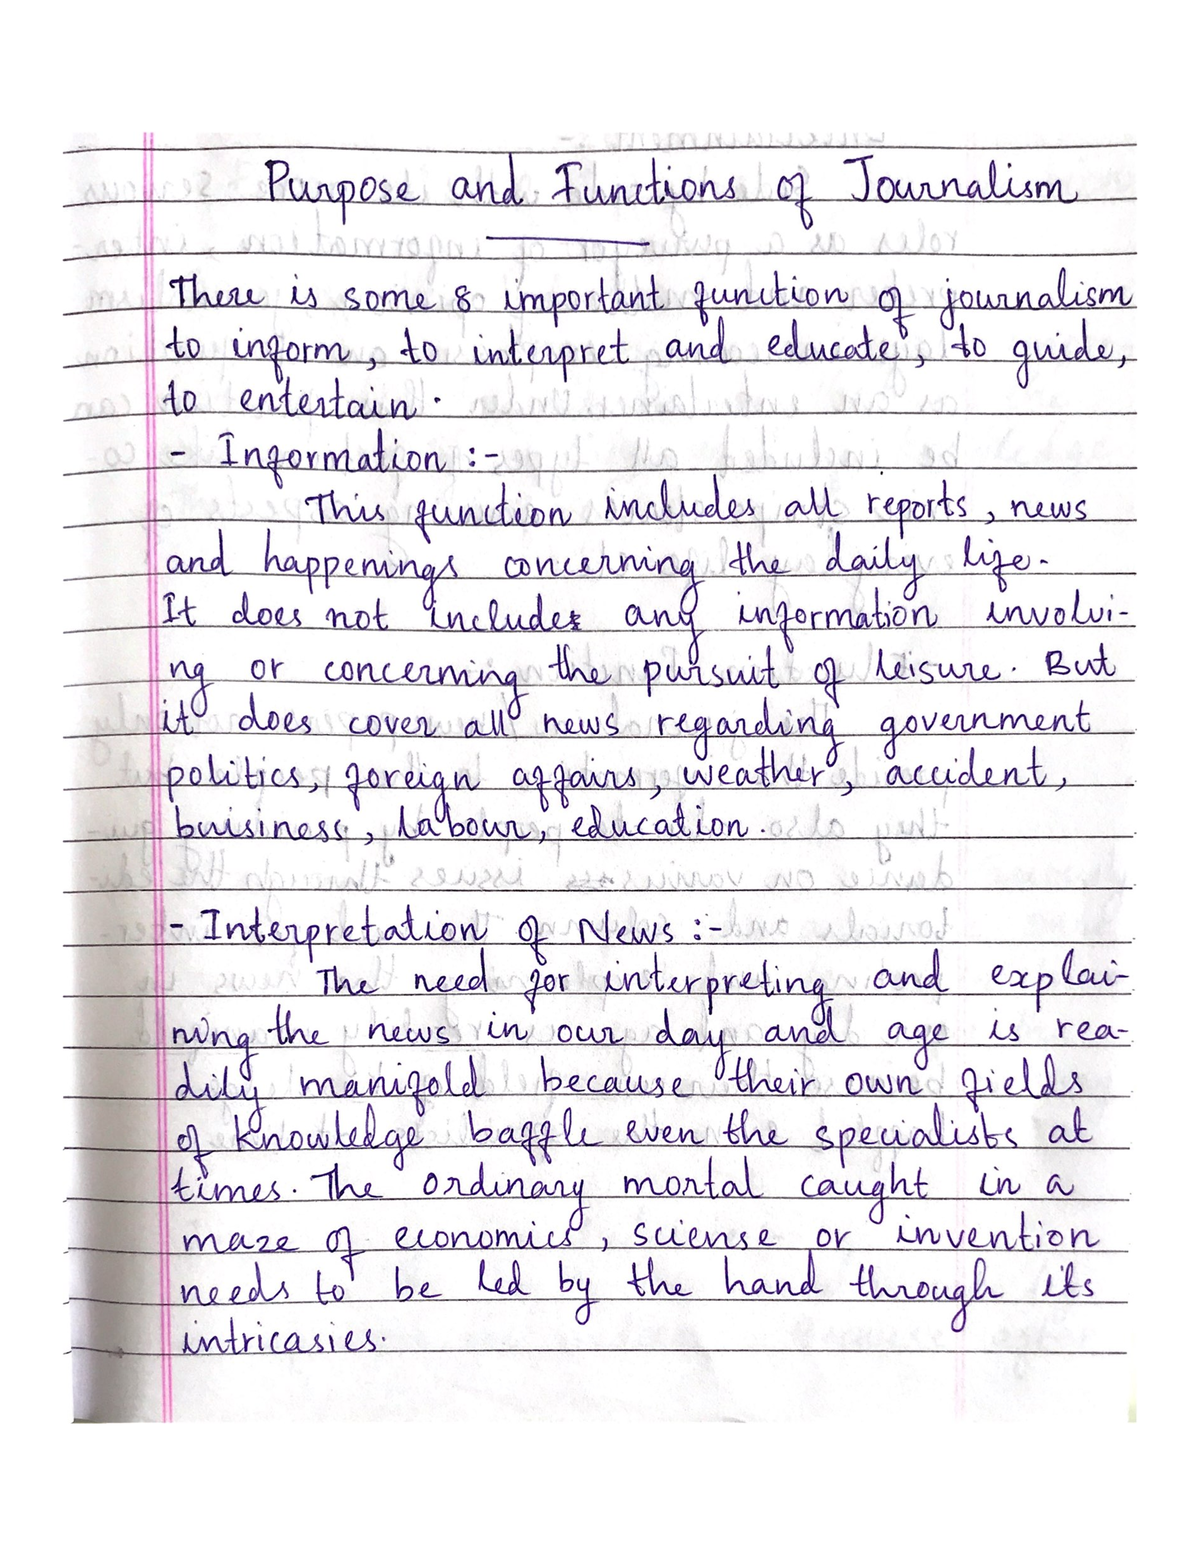 Purpose and Functions of Journalism
There is some 8 important function of journalism
to inform, to interpret and educate, to guide,
to entertain.
- Information :-
This function includes all reports, news
and happenings concerning the daily life.
It does not include any information involvi-
ng or concerning the pursuit of leisure. But
it does cover all news regarding government
politics, foreign affairs, weather, accident,
buisiness, labour, education.
- Interpretation of News :-
The need for interpreting and explai-
ning the news in our day and age is rea-
dily manifold because their own fields
of knowledge baffle even the specialists at
times. The ordinary mortal caught in a
maze of economics, sciense or invention
needs to be led by the hand through its
intricasies.